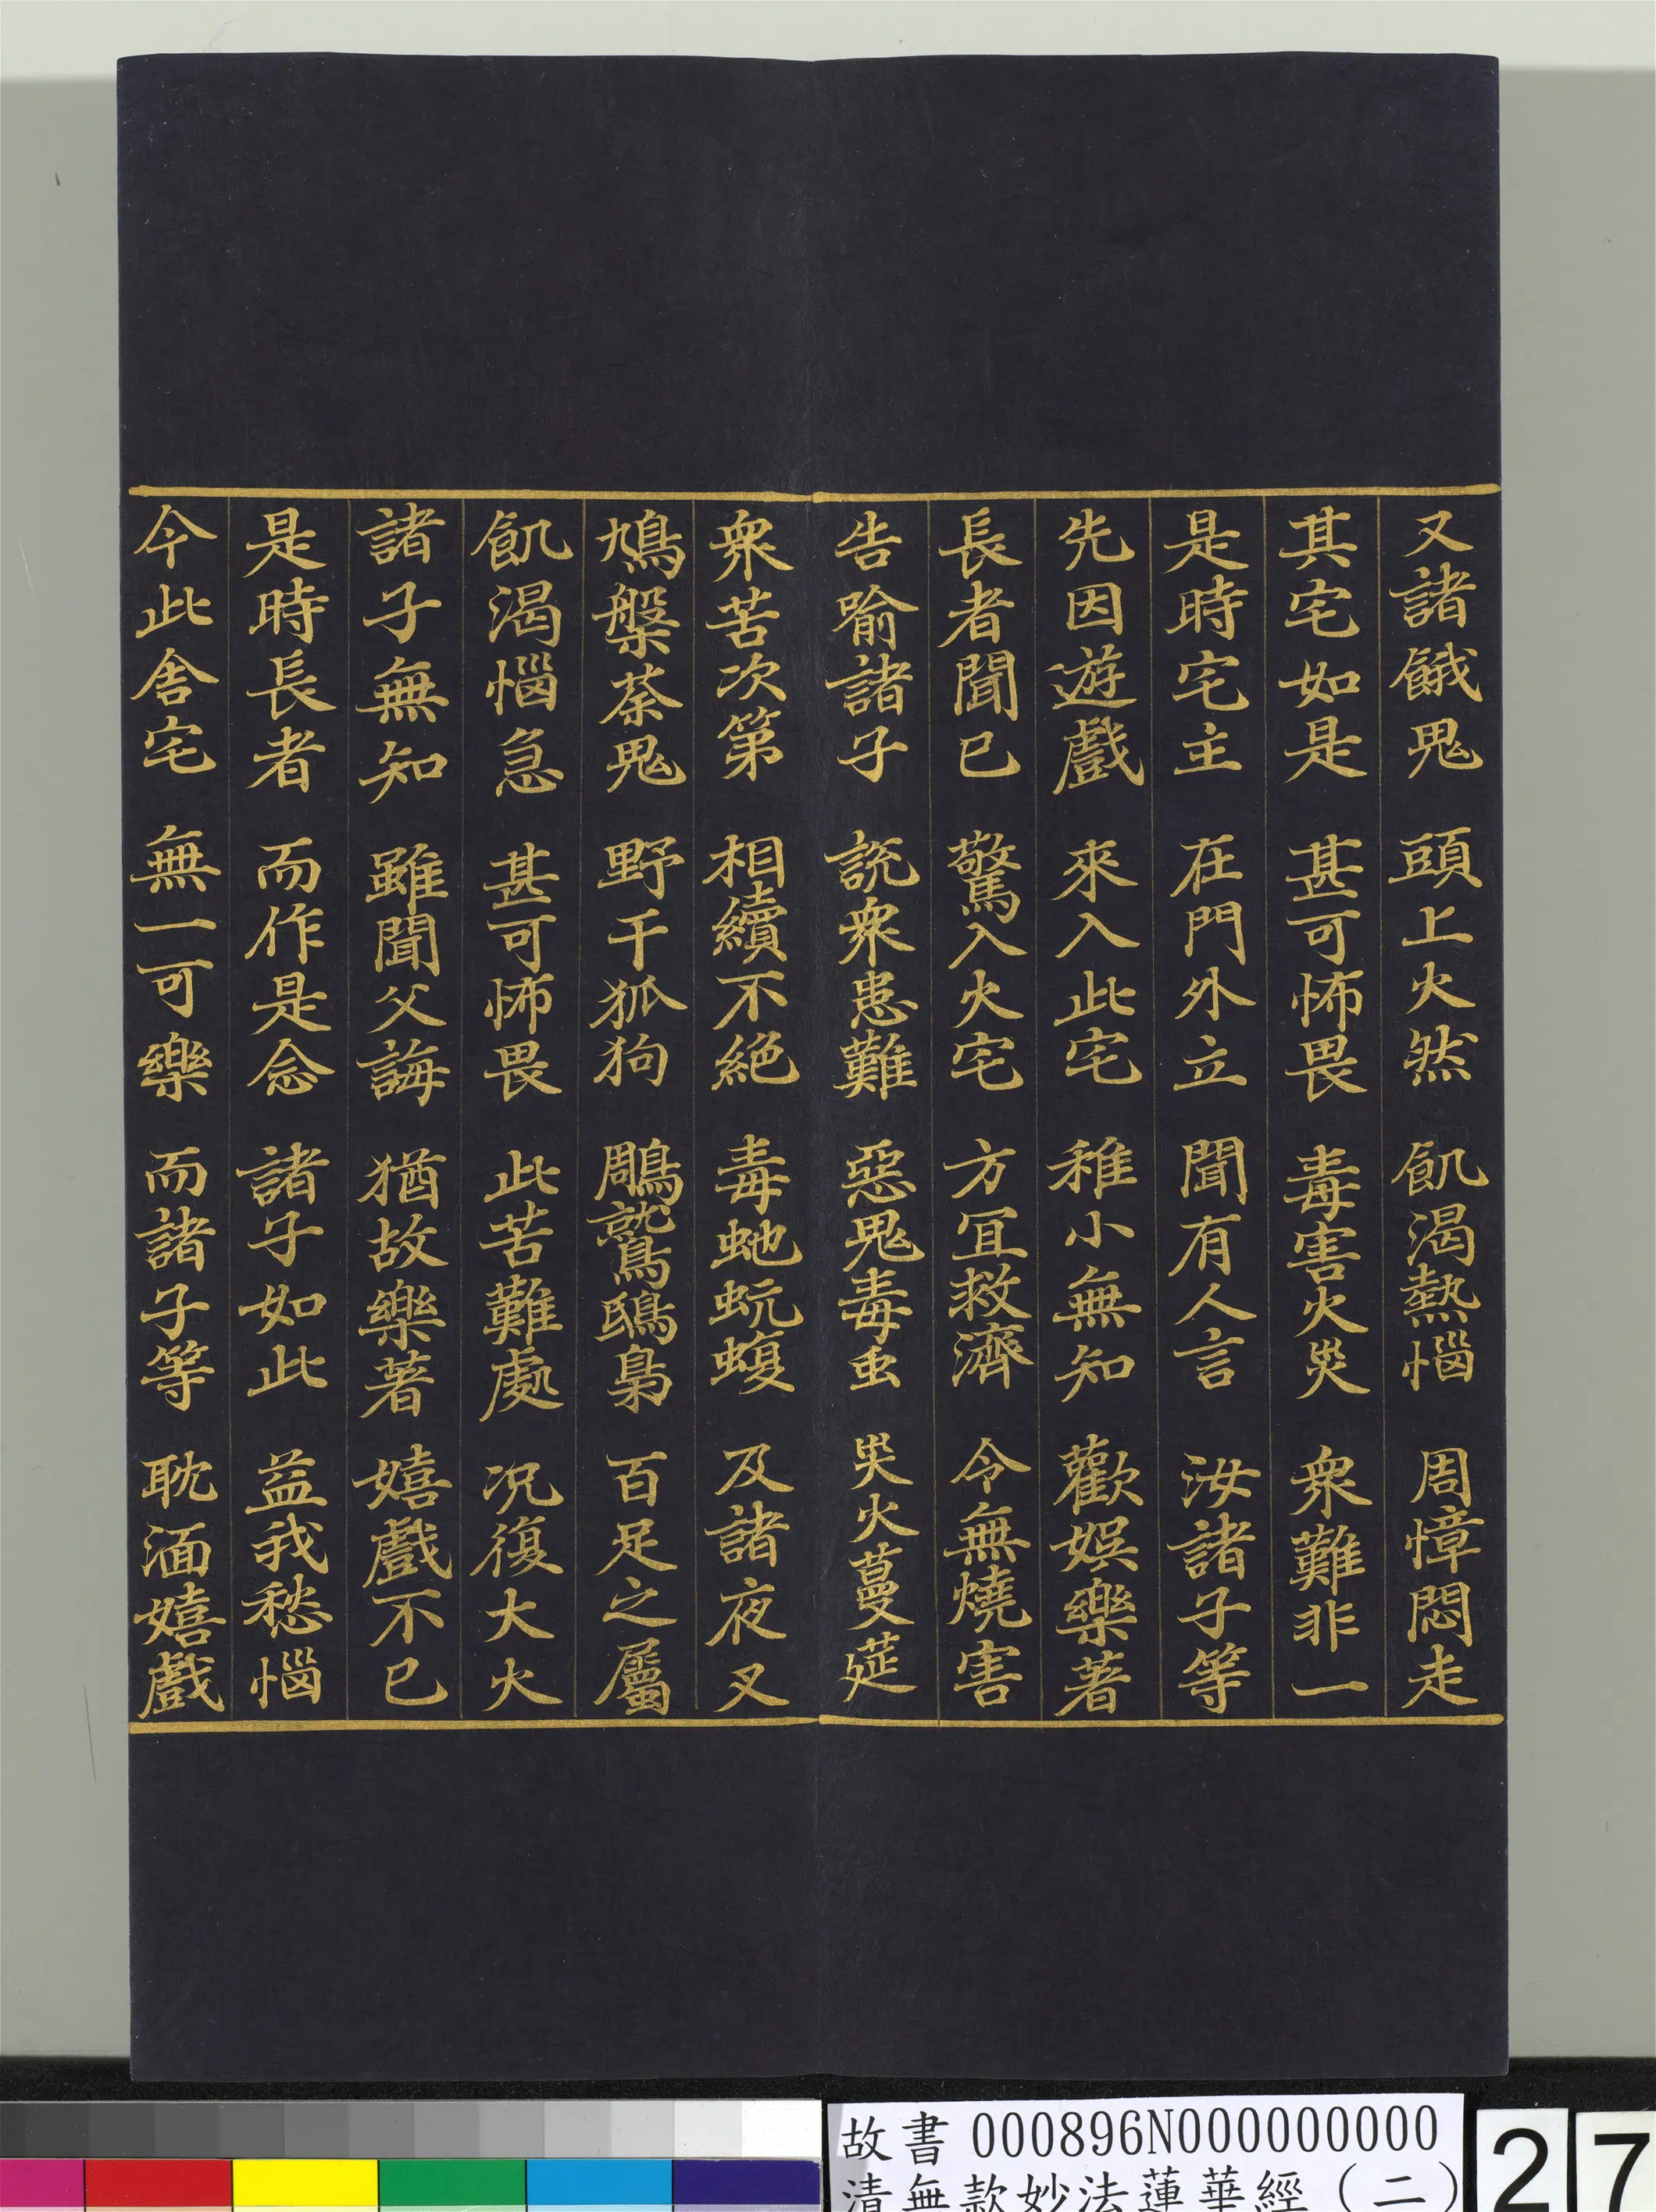 又諸餓鬼 頭上火然 飢渴熱惱 周慞悶走
其宅如是 甚可怖畏 毒害火災 衆難非一
是時宅主 在門外立 聞有人言 汝諸子等
先因遊戲 來入此宅 稚小無知 歡娛樂著
長者聞已 驚入火宅 方冝救濟 令無燒害
告喻諸子 說衆患難 惡鬼毒虫 災火蔓莚
衆苦次第 相續不絕 毒虵蚖蝮 及諸夜叉
鳩槃荼鬼 野干狐狗 鵰鷲鴟梟 百足之屬
飢渴惱急 甚可怖畏 此苦難處 况復大火
諸子無知 雖聞父誨 猶故樂著 嬉戲不已
是時長者 而作是念 諸子如此 益我愁惱
今此舍宅 無一可樂 而諸子等 耽湎嬉戲
故書 000896N000000000
清無款妙法蓮華經(二)
27